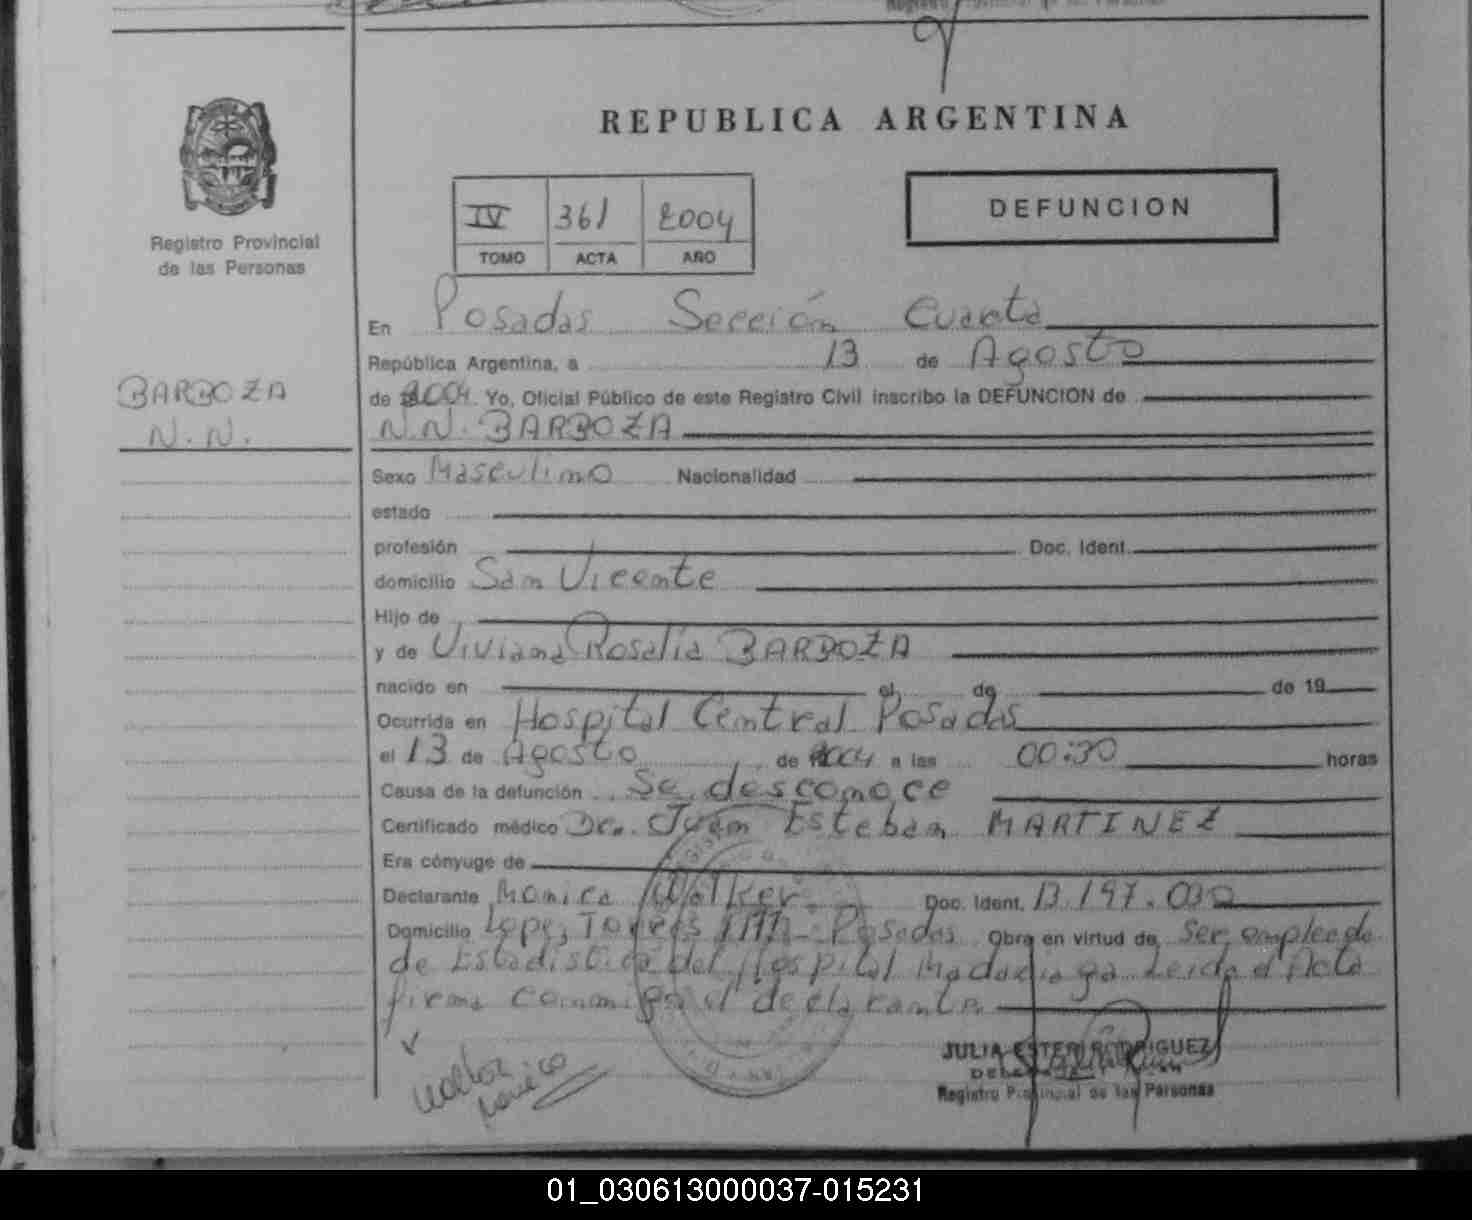 REPUBLICA ARGENTINA
Registro Provincial
de las Personas
IV 361 2004
TOMO ACTA AÑO
DEFUNCION
En Posadas Sección Cuarta
República Argentina, a 13 de Agosto
BARBOZA
N.N.
de 2004. Yo, Oficial Público de este Registro Civil inscribo la DEFUNCION de
N.N. BARBOZA
Sexo Masculino Nacionalidad
estado
profesión Doc. Ident.
domicilio San Vicente
Hijo de
y de Viviana Rosalía BARBOZA
nacido en el de de 19
Ocurrida en Hospital Central Posadas
el 13 de Agosto de 2004 a las 00:30 horas
Causa de la defunción Se desconoce
Certificado médico Dr. Juan Esteban MARTINEZ
Era cónyuge de
Declarante Monica Walker Doc. Ident. 13.197.030
Domicilio Lopez Torres Posadas Obra en virtud de Ser empleada
de Estadistica del Hospital Madariaga Leida el Acta
firma conmigo el declarante
JULIA ESTER RODRIGUEZ
Registro Provincial de las Personas
01_030613000037-015231